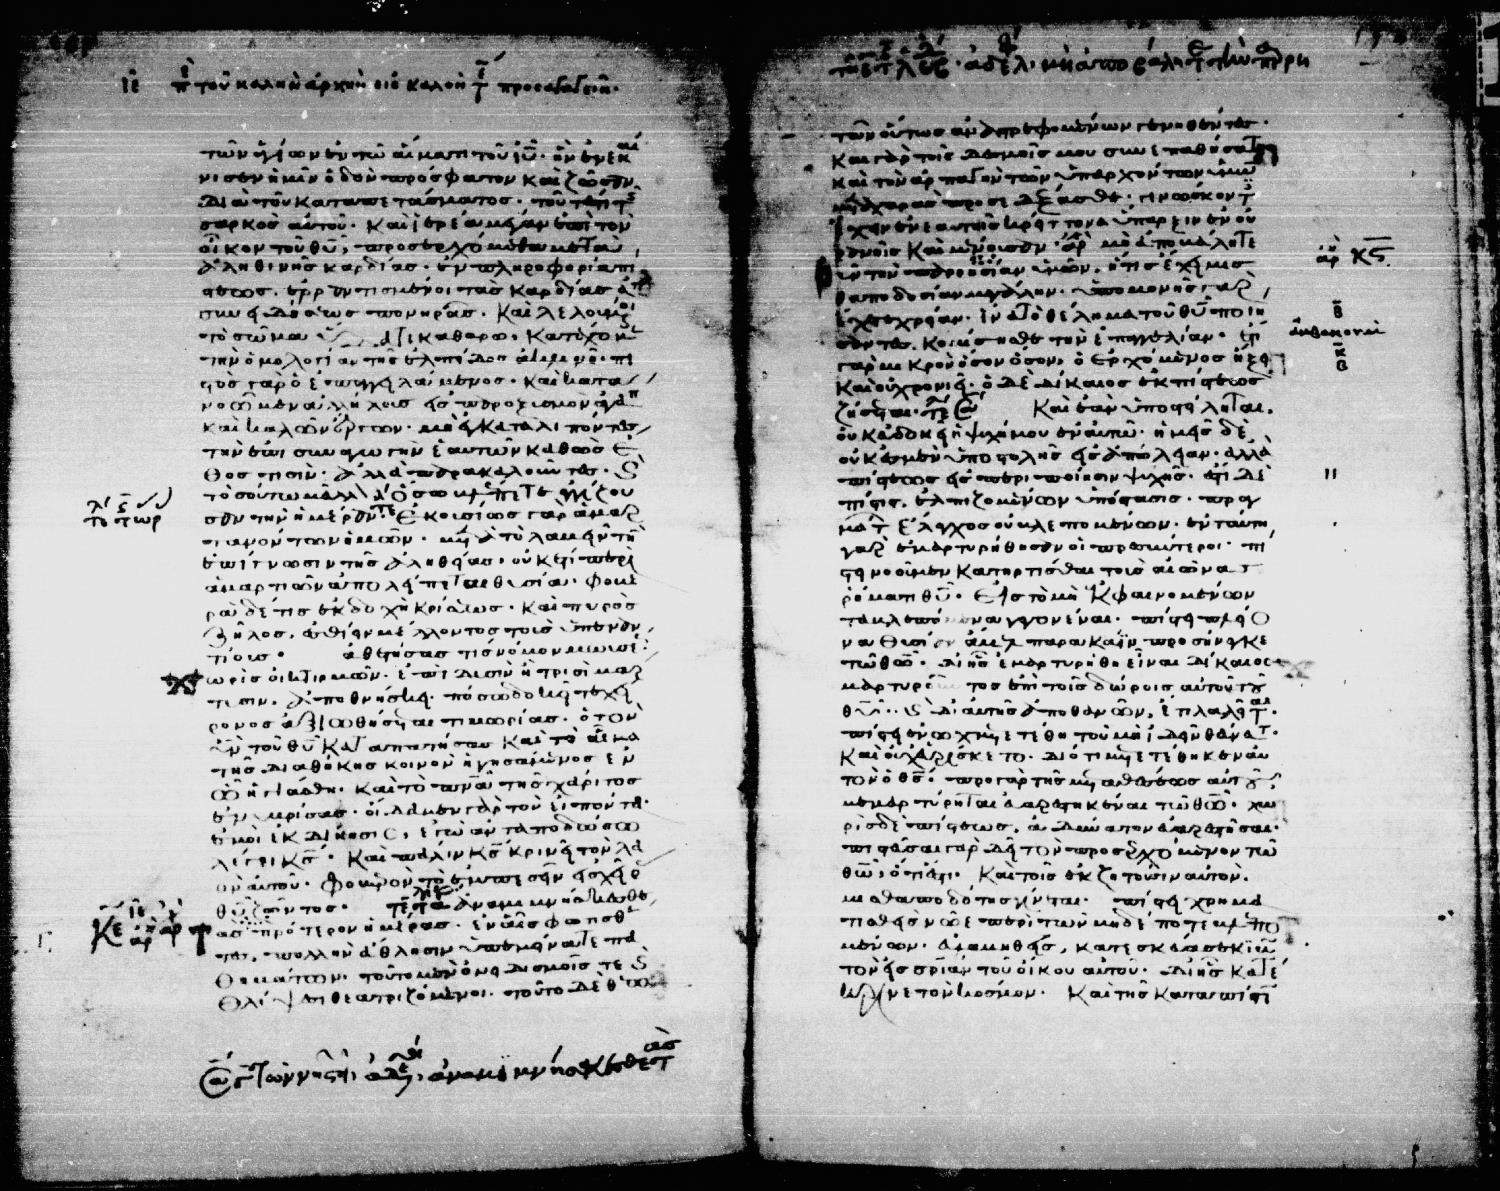 τῶν ἁγίων ἐν τῷ αἵματι τοῦ ιυ· ἣν ἐνεκαί
νισεν ἡμῖν ὁδὸν πρόσφατον καὶ ζῶσαν
διὰ τοῦ καταπετάσματος· τουτέστι τ
σαρκὸς αὐτοῦ· καὶ ἱερέα μέγαν ἐπὶ τὸν
οἶκον τοῦ θυ, προσερχώμεθα μετὰ
ἀληθινῆς καρδίας· ἐν πληροφορία πί
στεως. ἐρραντισμένοι τὰς καρδίας ἀπὸ
συνειδήσεως πονηρᾶς· καὶ λελουμένοι
τὸ σῶμα ὕδατι καθαρῶ, κατέχωμεν
τὴν ὁμολογίαν τῆς ἐλπίδος ἀκλινῆ· πι
στὸς γὰρ ὁ ἐπαγγειλάμενος· καὶ κατα
νοῶμεν ἀλλήλους εἰς παροξισμὸν ἀγάπης
καὶ καλῶν ἔργων· μὴ ἐγκαταλιπόντες
τὴν ἐπισυναγωγὴν ἑαυτῶν καθὼς ἔ
θος τισίν· ἀλλὰ παρακαλοῦντες· καὶ
τοσούτω μᾶλλον ὅσω βλέπετε ἐγγίζου
σαν τὴν ἡμέραν· ἑκουσίως γὰρ ἁμαρ
τανόντων ἡμῶν· μετὰ τὸ λαβεῖν τὴν
ἐπίγνωσιν τῆς ἀληθείας· οὐκέτι περὶ
ἁμαρτιῶν ἀπολείπεται θυσία· φοβε
ρὰ δέ τις ἐκδοχὴ κρίσεως· καὶ πυρὸς
ζῆλος, ἐσθίειν μέλλοντος τοὺς ὑπεναν
τίους· ἀθετήσας τις νόμον μωυσέ
χωρὶς οἰκτιρμῶν· ἐπὶ δυσὶν ἢ τρισὶ μαρ
τυσιν, ἀποθνήσκει· πόσω δοκεῖτε χεί
ρονος ἀξιωθήσεται τιμωρίας· ὁ τὸν
υν τοῦ θυ καταπατήσας καὶ τὸ αἷμα
τῆς διαθήκης κοινὸν ἡγησάμενος ἐν
ᾧ ἡγιάσθη· καὶ τὸ πνα τῆς χάριτος
ἐνυβρίσας· οἴδαμεν γὰρ τὸν εἰπόντα·
ἐμοὶ ἐκδίκησις, ἐγὼ ἀνταποδώσω
λέγει κς· καὶ πάλιν κς κρινεῖ τὸν λα
ὸν αὐτοῦ· φοβερὸν τὸ ἐμπεσεῖν εἰς χεῖρ
θυ ζῶντος· ἀναμιμνήσκεσθε
τὰς πρότερον ἡμέρας· ἐν αἷς φωτισθέν
τες, πολλὴν ἄθλησιν ὑπεμείνατε πα
θημάτων· τοῦτο μὲν ὀνειδισμοῖς τε καὶ
θλίψεσι θεατριζόμενοι· τοῦτο δὲ
τῶν οὕτως ἀναστρεφομένων γενηθέντες·
καὶ γὰρ τοῖς δεσμοῖς μου συνεπαθήσατε
καὶ τὸν ἁρπαγὴν τῶν ὑπαρχόντων ὑμῶν
μετὰ χαρᾶς προσεδέξασθε· γινώσκοντ
ἔχειν ἐν ἑαυτοῖς κρείττονα ὕπαρξιν ἐν οὐ
ρανοῖς καὶ μένουσαν· μὴ ἀποβάλητε
οὖν τὴν παρρησίαν ὑμῶν, ἥτις ἔχει μισ
θαποδοσίαν μεγάλην· ὑπομονῆς γὰρ
ἔχετε χρείαν· ἵνα τὸ θέλημα τοῦ θυ ποιή
σαντες, κομίσησθε τὴν ἐπαγγελίαν· ἔτι
γὰρ μικρὸν ὅσον ὅσον, ὁ ἐρχόμενος ἥξει
καὶ οὐ χρονιεῖ· ὁ δὲ δίκαιος ἐκ πίστεως
ζήσεται· καὶ ἐὰν ὑποστείληται,
οὐκ εὐδοκεῖ ἡ ψυχή μου ἐν αὐτῷ· ἡμεῖς δὲ
οὐκ ἐσμὲν ὑποστολῆς εἰς ἀπώλειαν· ἀλλὰ
πίστεως εἰς περιποίησιν ψυχῆς· ἔστι δὲ
πίστις, ἐλπιζομένων ὑπόστασις· πραγ
μάτ ἔλεγχος οὐ βλεπομένων· ἐν ταύτη
γὰρ ἐμαρτυρήθησαν οἱ πρεσβύτεροι· πί
στει νοοῦμεν κατηρτίσθαι τοὺς αἰῶνας
ῥήματι θυ· εἰς τὸ μὴ ἐκ φαινομένων
τὰ βλεπόμενα γεγονέναι· πίστει πλείο
να θυσίαν ἄβελ παρὰ κάϊν προσήνεγκε
τῷ θω· δι' ἧς ἐμαρτυρήθη εἶναι δίκαιος
μαρτυροῦντος ἐπὶ τοῖς δώροις αὐτοῦ τοῦ
θυ· καὶ δι' αὐτῆς ἀποθανών, ἔτι λαλεῖται·
πίστει ἐνὼχ μετετέθη τοῦ μὴ ἰδεῖν θάνατ·
καὶ οὐχ εὑρίσκετο· διότι μετέθηκεν αὐ
τὸν ὁ θς· πρὸ γὰρ τῆς μεταθέσεως αὐτοῦ
μεμαρτύρηται εὐαρεστηκέναι τῷ θω· χω
ρὶς δὲ πίστεως, ἀδύνατον εὐαρεστῆσαι·
πιστεῦσαι γὰρ δεῖ τὸν προσερχόμενον τῷ
θω, ὅτι ἔστι· καὶ τοῖς ἐκζητοῦσιν αὐτόν,
μισθαποδότης γίνεται· πίστει χρημα
τισθεὶς νῶε περὶ τῶν μηδέπω βλεπο
μένων· εὐλαβηθείς, κατεσκεύασε κιβω
τὸν εἰς σριαν τοῦ οἴκου αὐτοῦ· δι' ἧς κατέ
κρινε τὸν κόσμον· καὶ τῆς κατὰ πίστι